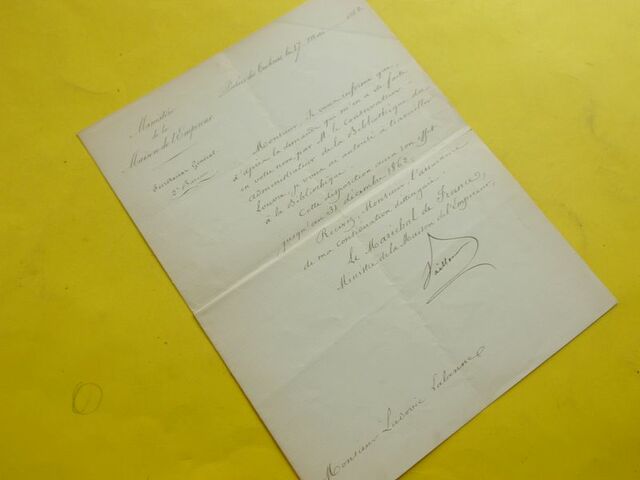 Palais des Tuileries, le 17 Mai 1862
Ministère
de la
Maison de l'Empereur
Secrétariat Général
2e Bureau
Monsieur, Je vous informe que,
d'après la demande qui m'en a été faite
en votre nom par Mr le Conservateur
administrateur de la Bibliothèque du
Louvre, je vous ai autorisé à travailler
à la Bibliothèque.
Cette disposition aura son effet
jusqu'au 31 décembre 1862.
Recevez, Monsieur, l'assurance
de ma considération distinguée.
Le Maréchal de France,
Ministre de la Maison de l'Empereur,
Vaillant
Monsieur Ludovic Lalanne